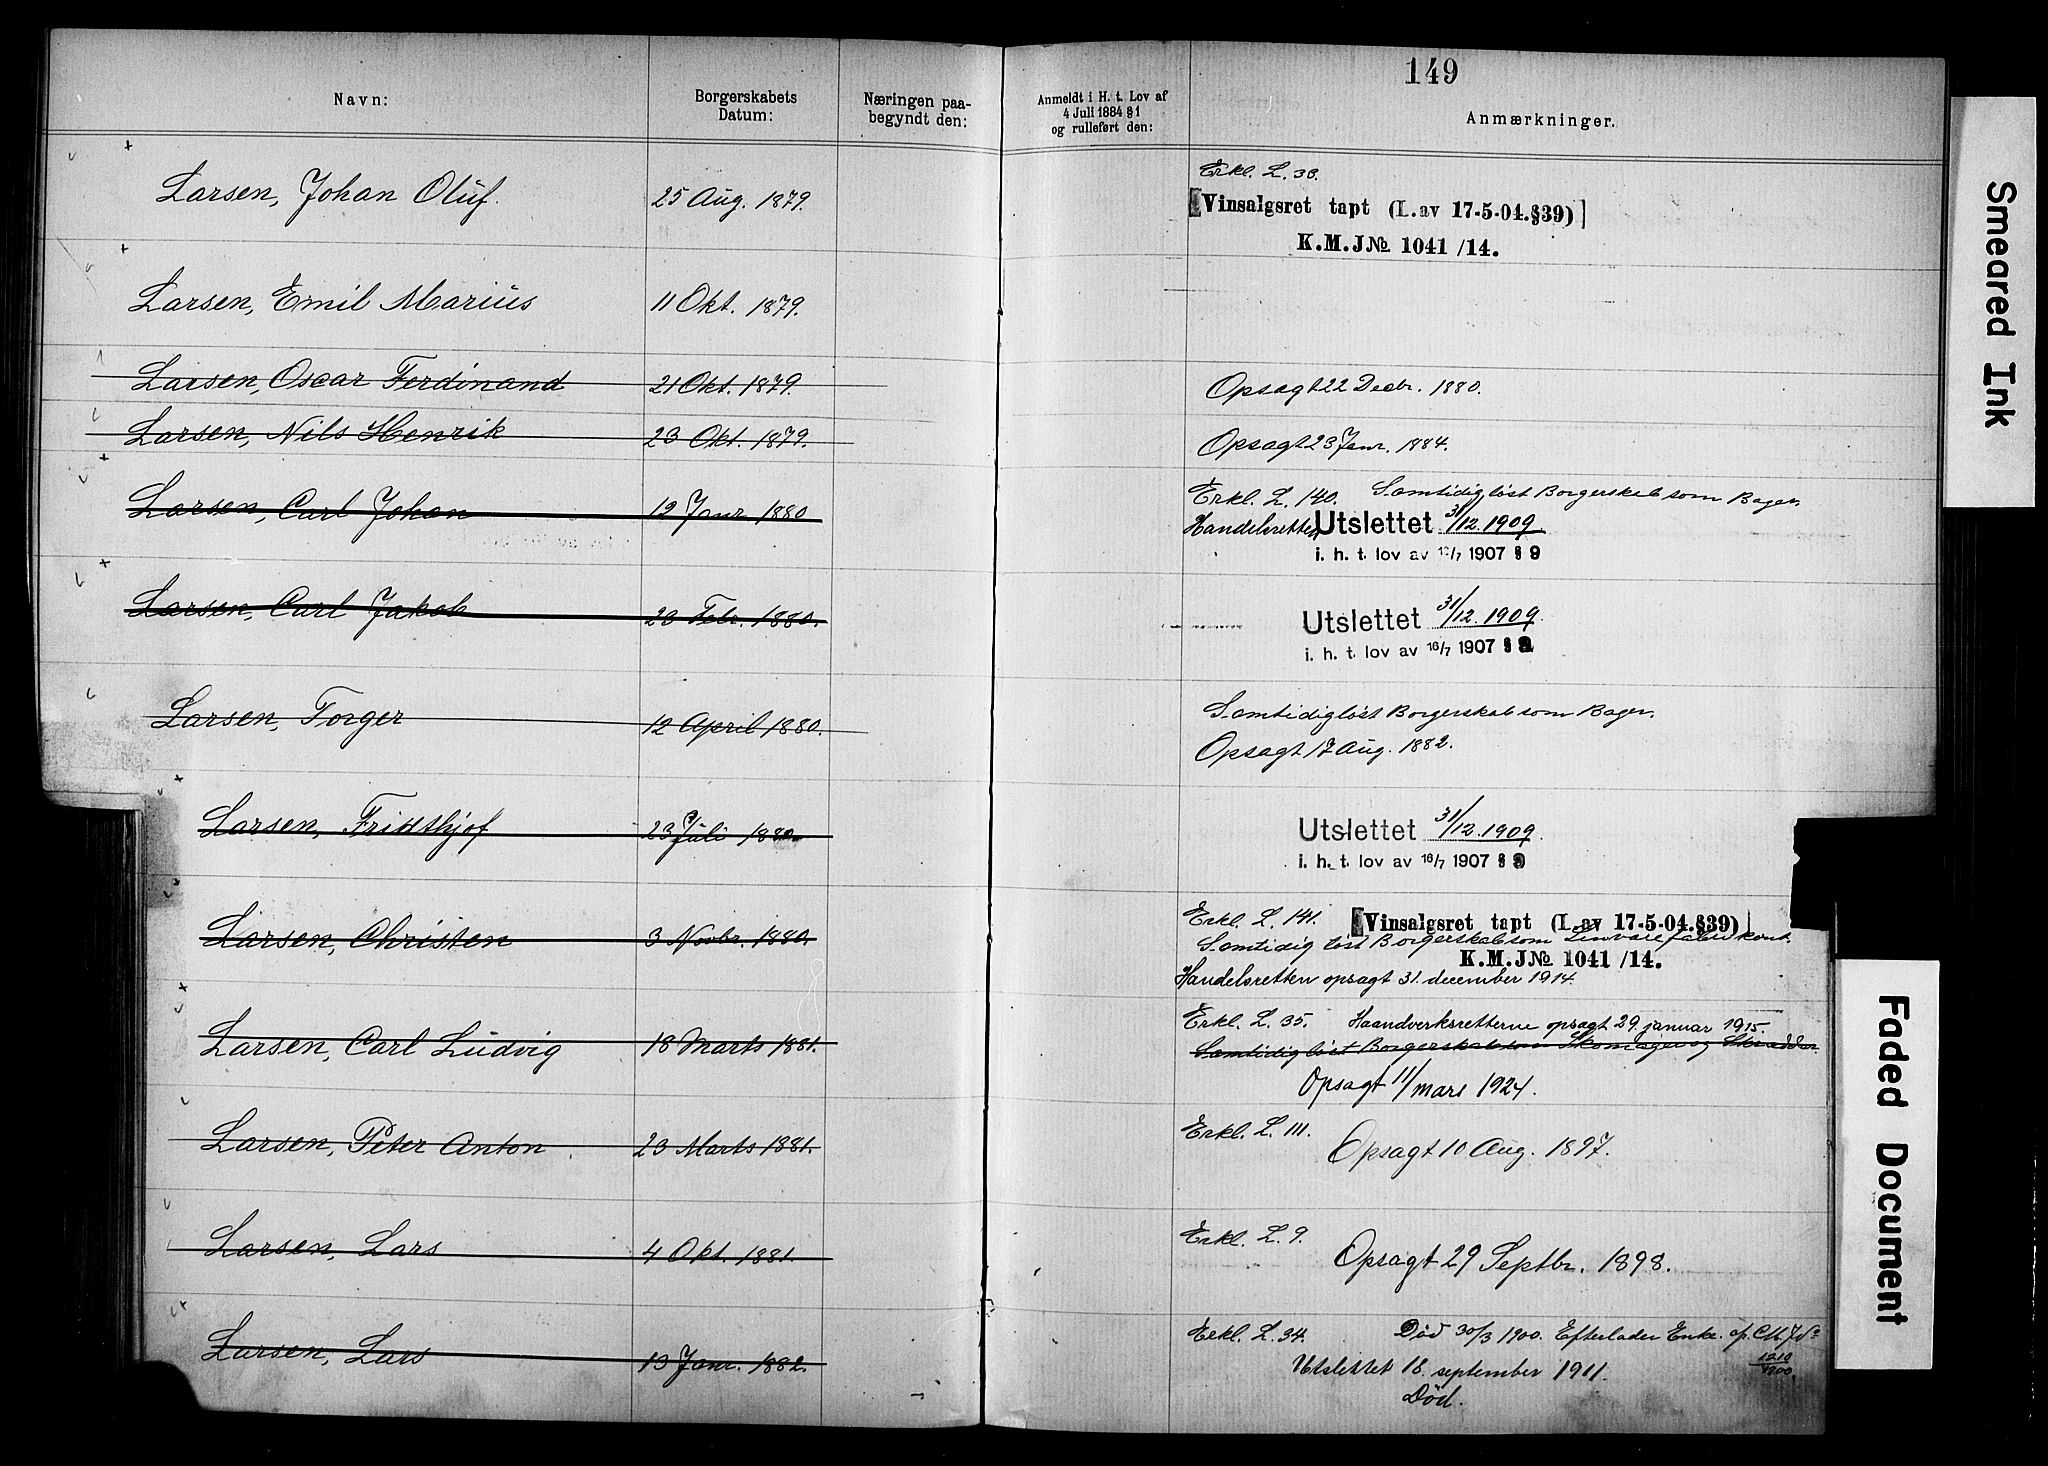 149
Navn:
Borgerskabets Datum:
Næringen paa-begyndt den:
Anmeldt i H. t. Lov af 4 Juli 1884 §1 og rulleført den:
Anmærkninger.
Larsen, Johan Oluf. 25 Aug. 1879. Erkl. L. 33.
[Vinsalgsret tapt (L.av 17-5-04.§39)]
K.M.J№ 1041/14.
Larsen, Emil Marius 11 Okt. 1879.
Larsen, Oscar Ferdinand 21 Okt. 1879. Opsagt 22 Decbr. 1880.
Larsen, Nils Henrik 23 Okt. 1879. Opsagt 23 Janr. 1884.
Larsen, Carl Johan 12 Janr 1880 Erkl. L. 140. Samtidig løst Borgerskab som Bager.
Handelsretten Utslettet 31/12.1909
i. h. t. lov av 16/7 1907 § 9
Larsen, Carl Jakob 23 Febr. 1880. Utslettet 31/12.1909.
i. h. t. lov av 16/7 1907 § 9
Larsen, Torger 12 April 1880. Samtidig løst Borgerskab som Bager.
Opsagt 17 Aug. 1882.
Larsen, Frithjof 23 Juli 1880. Utslettet 31/12.1909.
i. h. t. lov av 16/7 1907 § 9
Larsen, Christen 3 Novbr. 1880. Erkl. L. 141. [Vinsalgsret tapt (L.av 17-5-04.§39)]
Samtidig løst Borgerskab som
K.M.J№ 1041/14.
Handelsretten opsagt 31. december 1914.
Larsen, Carl Ludvig 18 Marts 1881. Erkl. L. 35. Haandverksretterne opsagt 29. januar 1915.
Samtidig løst Borgerskab som Skomager og Skrædder.
Opsagt 11/mars 1924.
Larsen, Peter Anton 23 Marts 1881. Erkl. L. 111. Opsagt 10 Aug. 1897.
Larsen, Lars 4 Okt. 1881. Erkl. L. 9. Opsagt 29 Septbr. 1898.
Larsen, Lars 13 Janr. 1882. Erkl. L. 34. Død 30/3 1900. Efterlader Enke.
Utslettet 18. september 1911.
Død.
Smeared Ink
Faded Document